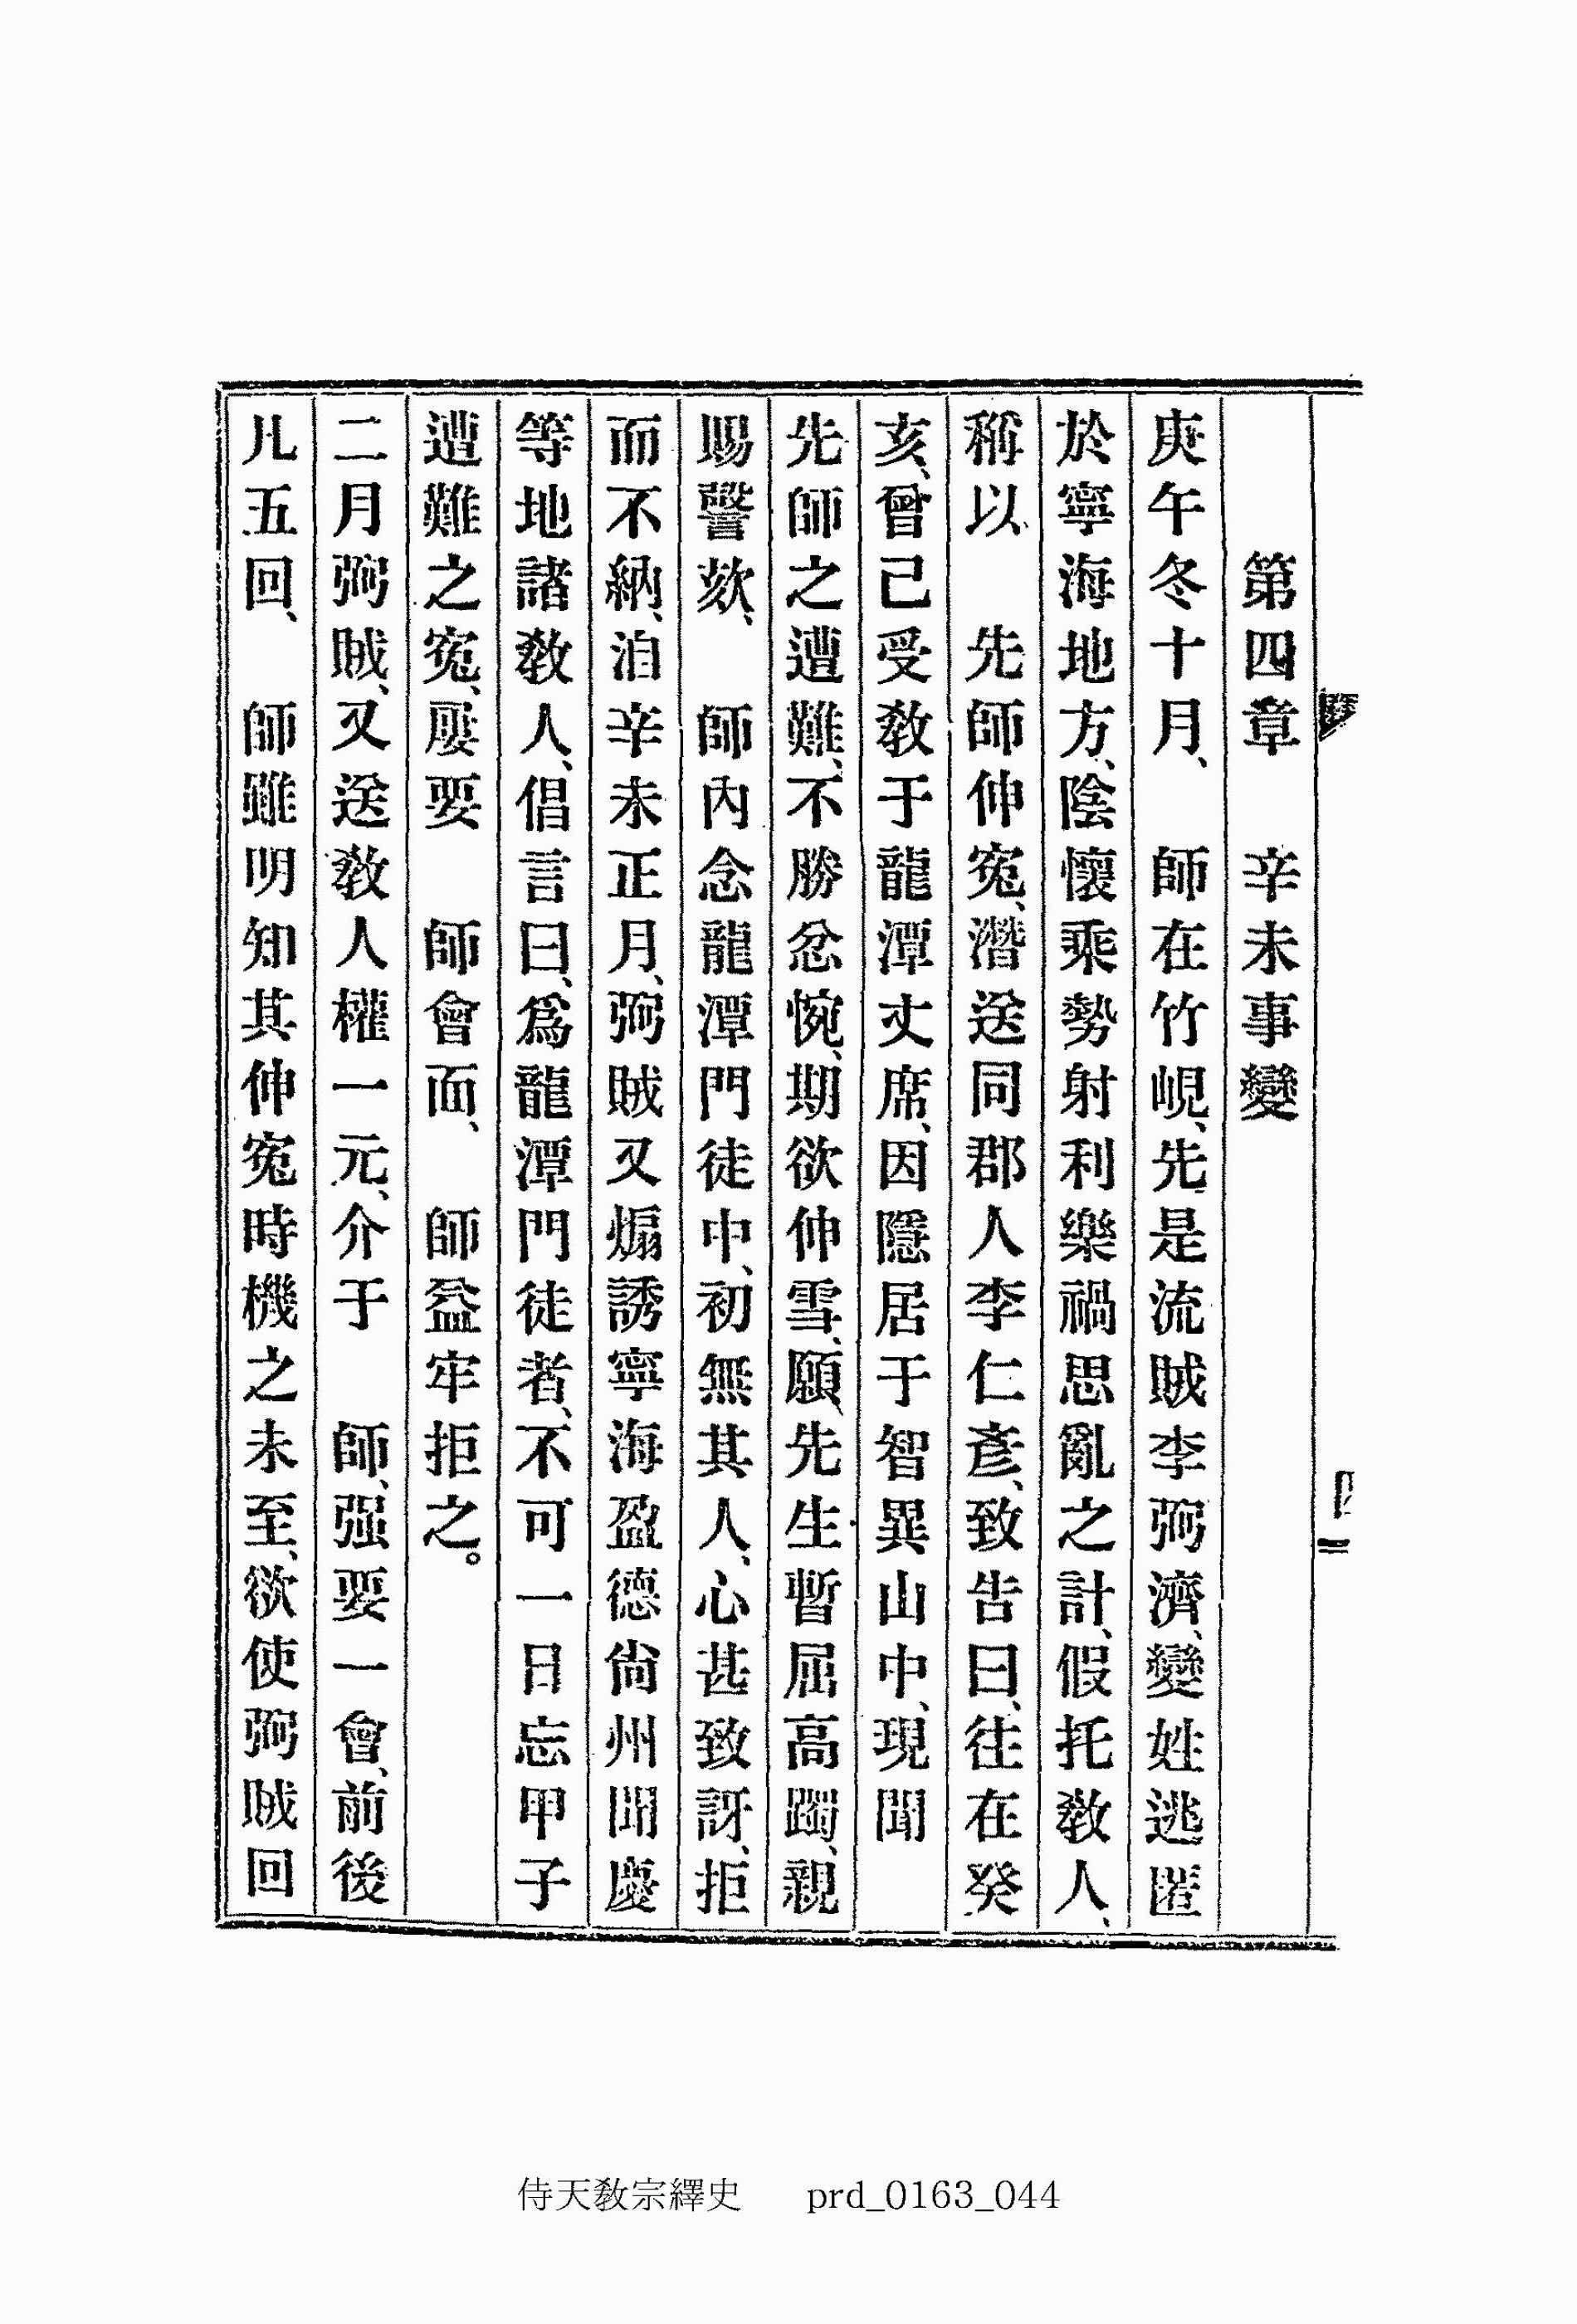 第四章　辛未事變
庚午冬十月、　師在竹峴、先是流賊李弼濟、變姓逃匿
於寧海地方、陰懷乘勢射利樂禍思亂之計、假托敎人、
稱以　先師伸寃、潛送同郡人李仁彥、致告曰、往在癸
亥、曾已受敎于龍潭丈席、因隱居于智異山中、現聞
先師之遭難、不勝忿惋、期欲伸雪、願先生暫屈高躅、親
賜謦欬、　師內念龍潭門徒中、初無其人、心甚致訝、拒
而不納、洎辛未正月、弼賊又煽誘寧海盈德尙州聞慶
等地諸敎人、倡言曰、爲龍潭門徒者、不可一日忘甲子
遭難之寃、屢要　師會面、　師益牢拒之。
二月弼賊、又送敎人權一元、介于　師、强要一會、前後
凡五回、　師雖明知其伸寃時機之未至、欲使弼賊回
侍天敎宗繹史 prd_0163_044